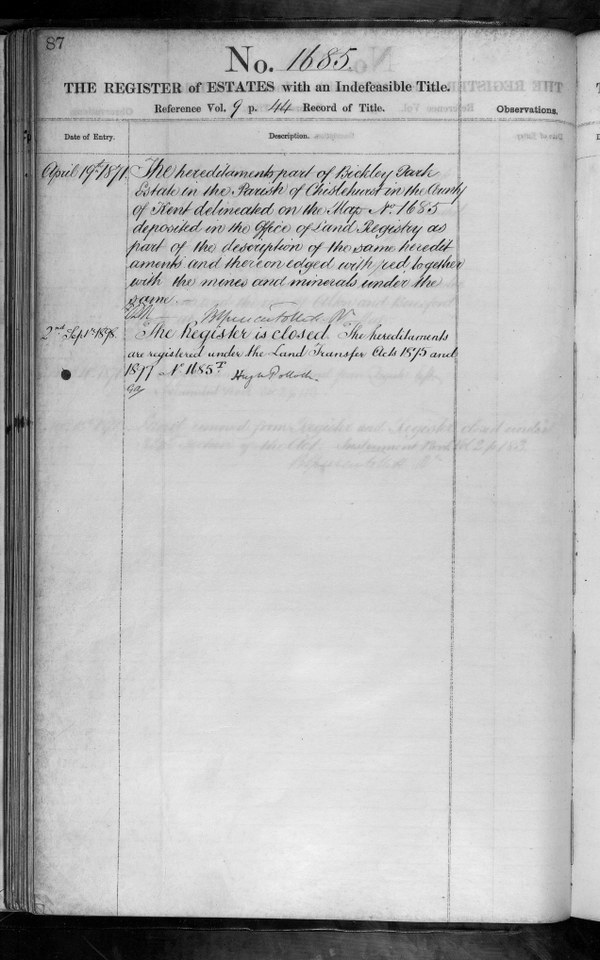 87
No. 1685.
THE REGISTER of ESTATES with an Indefeasible Title.
Reference Vol. 9 p. 44 Record of Title.
Observations.
Date of Entry.
Description.
April 19th 1871
The hereditaments part of Bickley Park
Estate in the Parish of Chislehurst in the County
of Kent delineated on the Map No. 1685
deposited in the Office of Land Registry as
part of the description of the same heredit
aments and thereon edged with red together
with the mines and minerals under the
same.—
2nd Septr. 1898.
The Register is closed. The hereditaments
are registered under the Land Transfer Acts 1875 and
1897 No 1685T
Hugh Pollock.